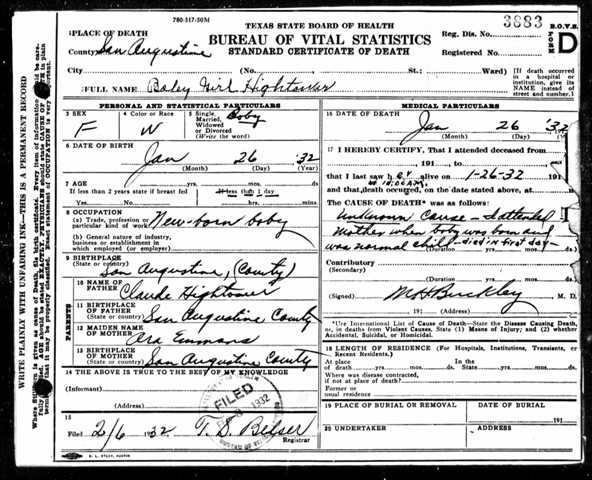 780-317-50M
TEXAS STATE BOARD OF HEALTH
BUREAU OF VITAL STATISTICS
STANDARD CERTIFICATE OF DEATH
Reg. Dis. No. 3883
B.O.V.S.
FORM D
Registered No.
PLACE OF DEATH
County San Augustine
City No. St.: Ward)
[If death occurred in a hospital or institution, give its NAME instead of street and number.]
FULL NAME Baby Girl Hightower
PERSONAL AND STATISTICAL PARTICULARS
3 SEX F
4 Color or Race W
5 Single, Married, Widowed or Divorced (Write the word) Baby
6 DATE OF BIRTH
Jan 26 '32
(Month) (Day) (Year)
7 AGE
If less than 2 years state if breast fed If less than 1 day
yrs. mos. ds. hrs. min.
8 OCCUPATION
(a) Trade, profession or particular kind of work New-born baby
(b) General nature of industry, business or establishment in which employed (or employer)
9 BIRTHPLACE
(State or country) San Augustine, (County)
PARENTS
10 NAME OF FATHER Claude Hightower
11 BIRTHPLACE OF FATHER
(State or country) San Augustine County
12 MAIDEN NAME OF MOTHER Ara Emmons
13 BIRTHPLACE OF MOTHER
(State or country) San Augustine County
14 THE ABOVE IS TRUE TO THE BEST OF MY KNOWLEDGE
(Informant)
(Address)
FILED
1932
15
Filed 2/6 1932 T. S. Belser
Registrar
MEDICAL PARTICULARS
16 DATE OF DEATH
Jan 26 '32
(Month) (Day) (Year)
17 I HEREBY CERTIFY, That I attended deceased
191 , to 191
that I last saw h er alive on 1-26-32 191
and that death occurred, on the date stated above, at m.
The CAUSE OF DEATH* was as follows:
Unknown Cause - I attended
mother when baby was born and
was normal child - died in first day -
(Duration) yrs. mos. ds.
Contributory
(Secondary)
(Duration yrs. mos. ds.
(Signed) Buckley M. D.
19 (Address)
*Use International List of Cause of Death—State the Disease Causing Death, or, in deaths from Violent Causes, State (1) Means of Injury; and (2) whether Accidental, Suicidal, or Homicidal.
18 LENGTH OF RESIDENCE (For Hospitals, Institutions, Transients, or Recent Residents.)
At place of death yrs. mos. ds. In the State yrs. mos. ds.
Where was disease contracted, if not at place of death?
Former or usual residence
19 PLACE OF BURIAL OR REMOVAL DATE OF BURIAL
191
20 UNDERTAKER ADDRESS
WRITE PLAINLY WITH UNFADING INK—THIS IS A PERMANENT RECORD